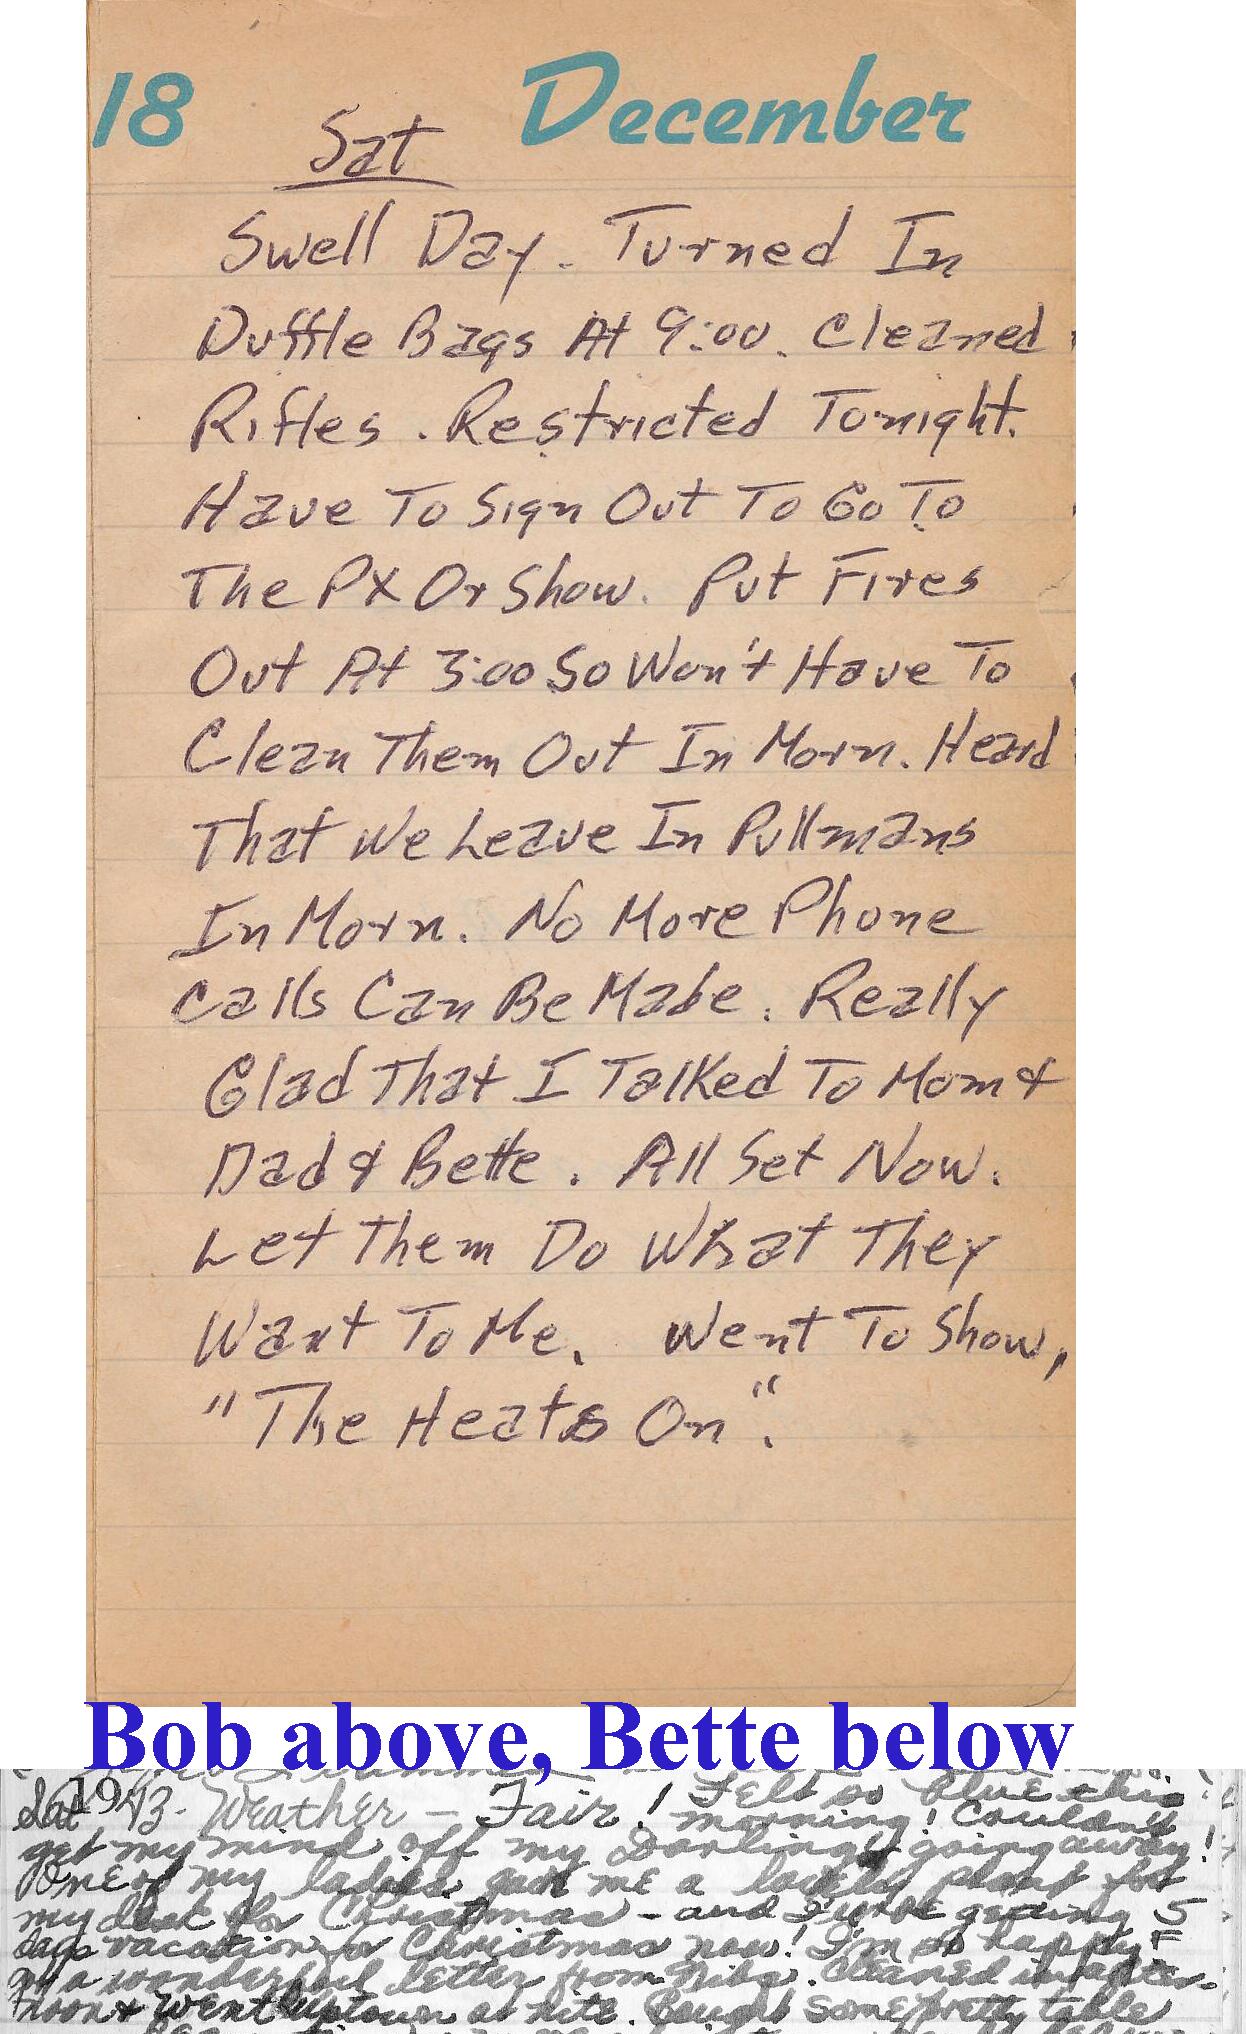 18 December
Sat
Swell Day. Turned In
Duffle Bags At 9:00. Cleaned
Rifles. Restricted Tonight.
Have To Sign Out To Go To
The PX Or Show. Put Fires
Out At 3:00 So Won't Have To
Clean Them Out In Morn. Heard
That We Leave In Pullmans
In Morn. No More Phone
Calls Can Be Made. Really
Glad That I Talked To Mom &
Dad & Bette. All Set Now.
Let Them Do What They
Want To Me. Went To Show,
"The Heats On".
Bob above, Bette below
Sat 1943. Weather - Fair! Felt so blue this
morning! Couldn't
get my mind off my Darling's going away!
One of my ladies gave me a lovely plant for
my desk for Christmas - and I'm getting 5
days vacation for Christmas now! I'm so happy
a wonderful letter from Cleaned in after-
noon & went uptown at nite. Bought some pretty table